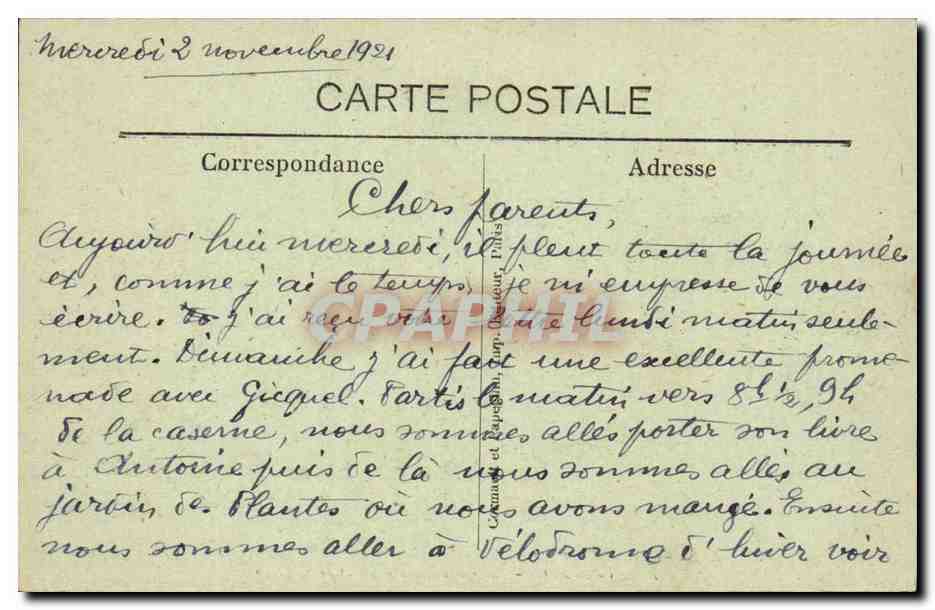 Mercredi 2 novembre 1921
CARTE POSTALE
Correspondance
Adresse
Chers parents,
Aujourd'hui mercredi, il pleut toute la journée
et, comme j'ai le temps, je m'empresse de vous
écrire. j'ai reçu votre lettre lundi matin seule-
ment. Dimanche j'ai fait une excellente prome-
nade avec Gicquel. Partis le matin vers 8h 1/2, 9h
de la caserne, nous sommes allés porter son livre
à Antoine puis de là nous sommes allés au
jardin des Plantes où nous avons mangé. Ensuite
nous sommes aller à Vélodrome d'hiver voir
et Papeghin, Imp. Paris
CPAPHIL